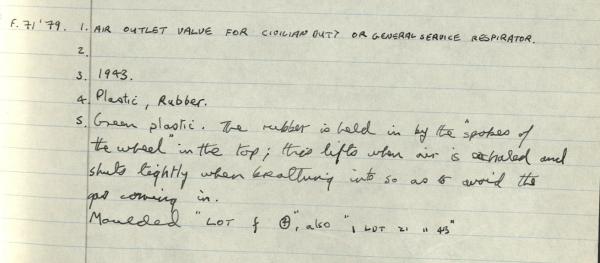 F. 71'79. 1. AIR OUTLET VALUE FOR CIVILIAN DUTY OR GENERAL SERVICE RESPIRATOR.
2.
3. 1943.
4. Plastic, Rubber.
5. Green plastic. The rubber is held in by the "spokes of
the wheel" in the top; this lifts when air is exhaled and
shuts tightly when breathing into so as to avoid the
gas coming in.
Moulded "LOT f ⊕", also "1 LOT 21 11 43"